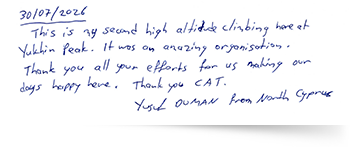 30/07/2026
This is my second high altitude climbing here at
Yukhin Peak. It was an amazing organisation.
Thank you all your efforts for us making our
days happy here. Thank you CAT.
Yusuf DUMAN From North Cyprus